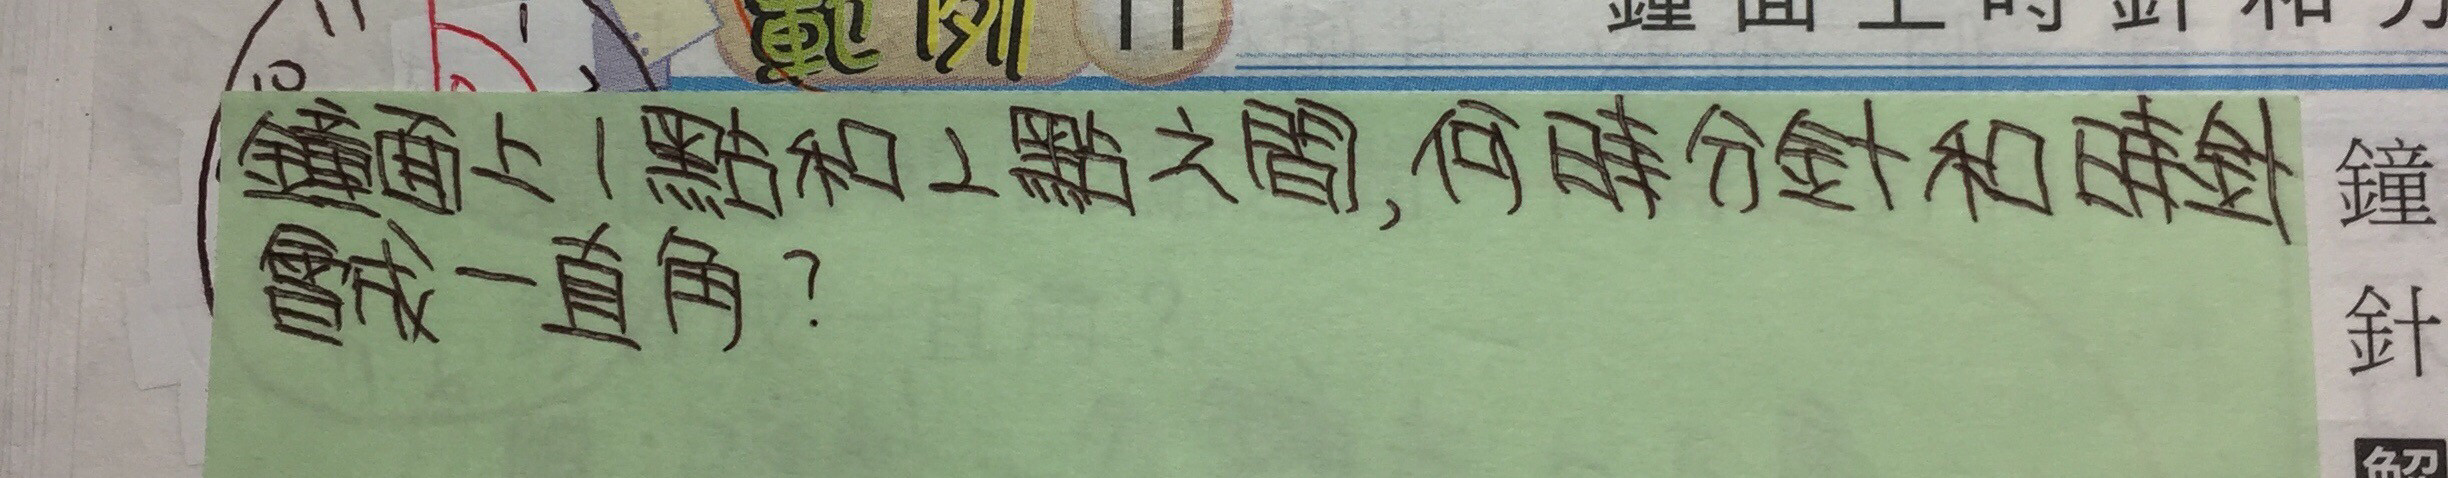 11 1
10 2
範例 11 鐘面上時針和分
鐘面上1點和2點之間,何時分針和時針
會成一直角?
鐘
針
解